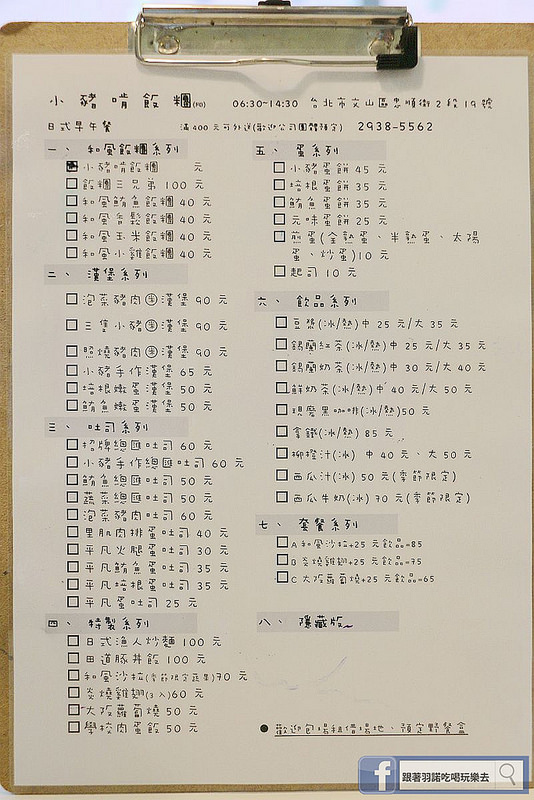 小豬啃飯糰(和) 06:30-14:30 台北市文山區忠順街2段19號
日式早午餐 滿400元可外送(歡迎公司團體預定) 2938-5562
一、和風飯糰系列
小豬啃飯糰 元
飯糰三兄弟 100 元
和風鮪魚飯糰 40 元
和風香鬆飯糰 40 元
和風玉米飯糰 40 元
和風小雞飯糰 40 元
二、漢堡系列
泡菜豬肉㊣漢堡 90 元
三隻小豬㊣漢堡 90 元
照燒豬肉㊣漢堡 90 元
小豬手作漢堡 65 元
培根嫩蛋漢堡 50 元
鮪魚嫩蛋漢堡 50 元
三、吐司系列
招牌總匯吐司 60 元
小豬手作總匯吐司 60 元
鮪魚總匯吐司 50 元
蔬菜總匯吐司 50 元
泡菜豬肉吐司 60 元
里肌肉排蛋吐司 40 元
平凡火腿蛋吐司 30 元
平凡鮪魚蛋吐司 35 元
平凡培根蛋吐司 35 元
平凡蛋吐司 25 元
四、特製系列
日式漁人炒麵 100 元
田道豚丼飯 100 元
和風沙拉(季節限定蔬果)70 元
炎燒雞翅(3入)60 元
大阪蘿蔔燒 50 元
學校肉蛋飯 50 元
五、蛋系列
小豬蛋餅 45 元
培根蛋餅 35 元
鮪魚蛋餅 35 元
元味蛋餅 25 元
煎蛋(全熟蛋、半熟蛋、太陽
蛋、炒蛋)10 元
起司 10 元
六、飲品系列
豆漿(冰/熱)中 25 元/大 35 元
錫蘭紅茶(冰/熱)中 25 元/大 35 元
錫蘭奶茶(冰/熱)中 30 元/大 40 元
鮮奶茶(冰/熱)中 40 元/大 50 元
現磨黑咖啡(冰/熱)50 元
拿鐵(冰/熱) 85 元
柳橙汁(冰) 中 40 元、大 50 元
西瓜汁(冰) 50 元(季節限定)
西瓜牛奶(冰) 70 元(季節限定)
七、套餐系列
A 和風沙拉+25 元飲品=85
B 炎燒雞翅+25 元飲品=75
C 大阪蘿蔔燒+25 元飲品=65
八、隱藏版~
●歡迎包場租借場地、預定野餐盒
f 跟著羽諾吃喝玩樂去